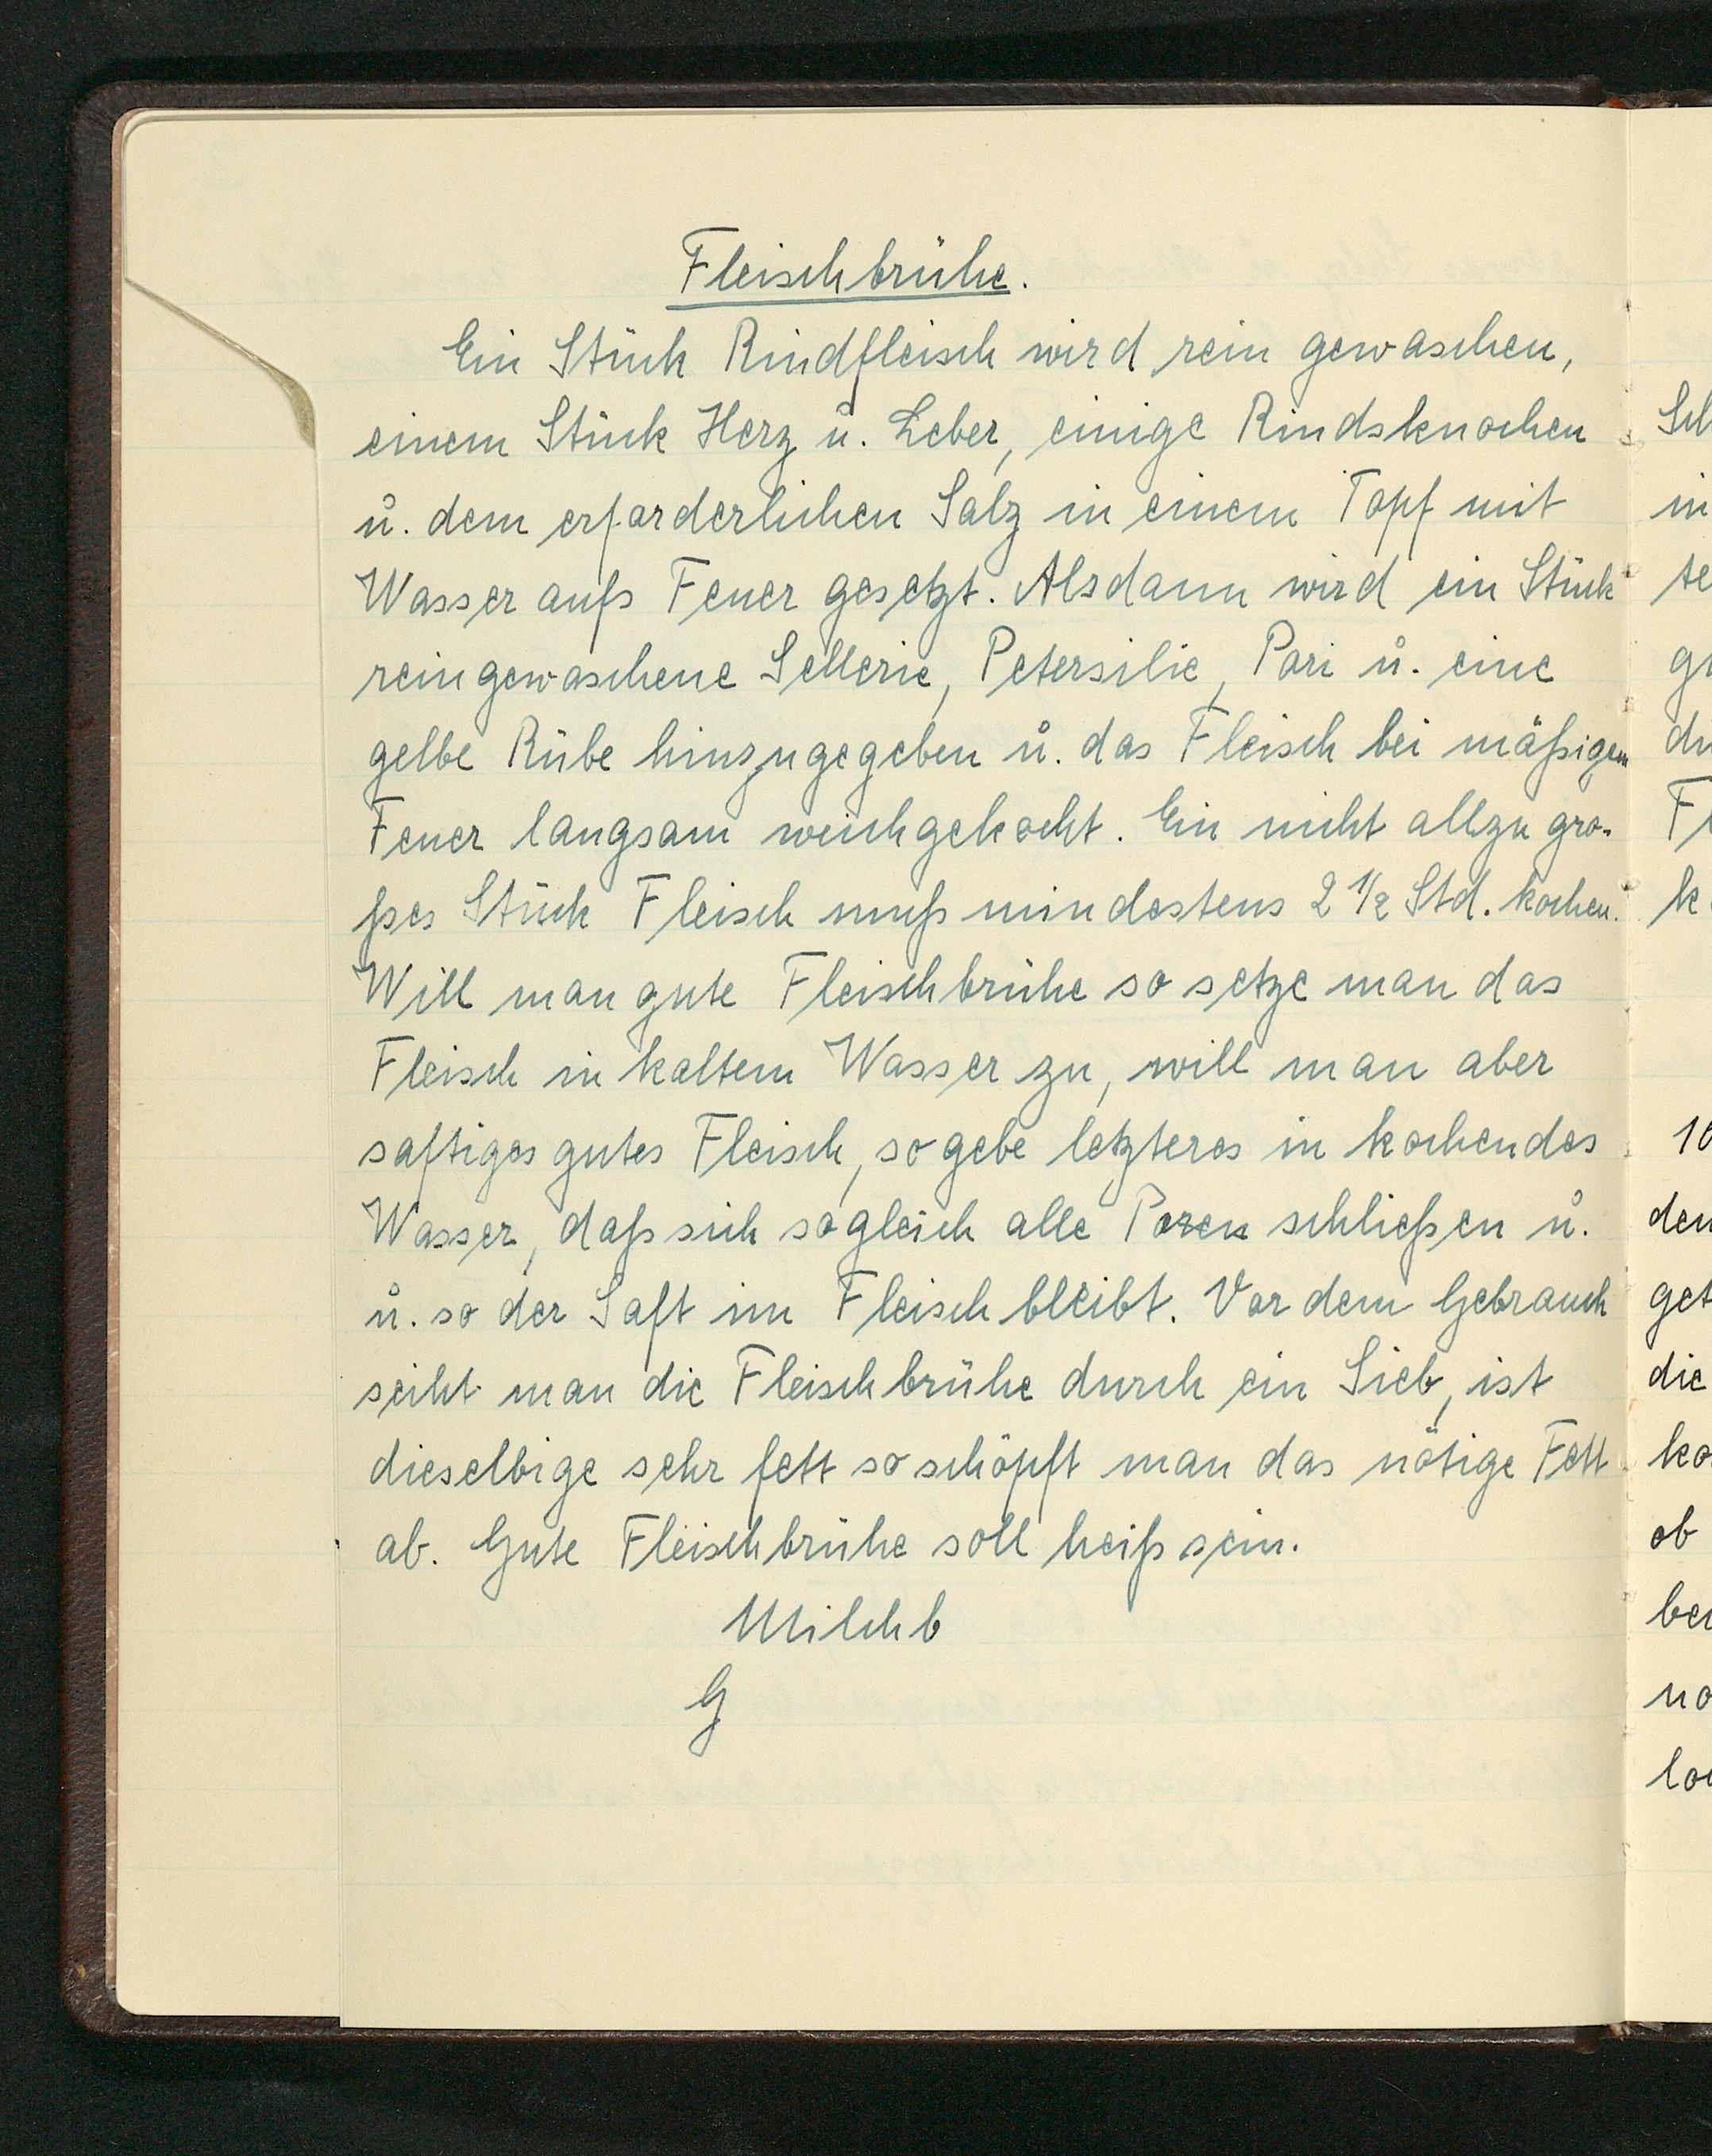 Fleischbrühe.
Ein Stück Rindfleisch wird rein gewaschen,
einem Stück Herz u. Leber, einige Rindsknochen
u. dem erforderlichen Salz in einem Topf mit
Wasser aufs Feuer gesetzt. Alsdann wird ein Stück
reingewaschene Sellerie, Petersilie, Pori u. eine
gelbe Rübe hinzugegeben u. das Fleisch bei mäßigem
Feuer langsam weichgekocht. Ein nicht allzu gro-
ßes Stück Fleisch muß mindestens 2 1/2 Std. kochen.
Will man gute Fleischbrühe so setze man das
Fleisch in kaltem Wasser zu, will man aber
saftiges gutes Fleisch, so gebe letzteres in kochendes
Wasser, daß sich sogleich alle Poren schließen u.
u. so der Saft im Fleisch bleibt. Vor dem Gebrauch
seiht man die Fleischbrühe durch ein Sieb, ist
dieselbige sehr fett so schöpft man das nötige Fett
ab. Gute Fleischbrühe soll heiß sein.
Milchb
G
Sch
in
te
gu
du
Fl
k
10
den
get
die
ko
ob
ber
no
loc